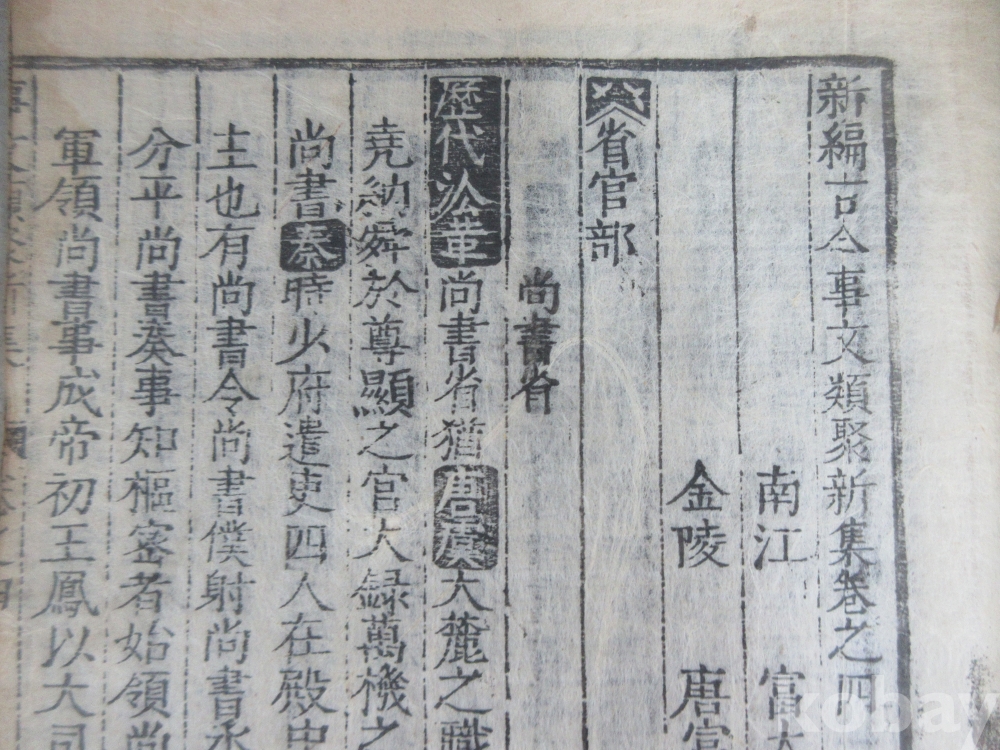 新編古今事文類聚新集卷之四
南江 富大
金陵 唐富
省官部
尚書省
歷代沿革 尚書省猶唐虞大麓之職
堯納舜於尊顯之官大錄萬機之
尚書秦時少府遣吏四人在殿中
主也有尚書令尚書僕射尚書丞
分平尚書奏事知樞密者始領尚
軍領尚書事成帝初王鳳以大司
kobay